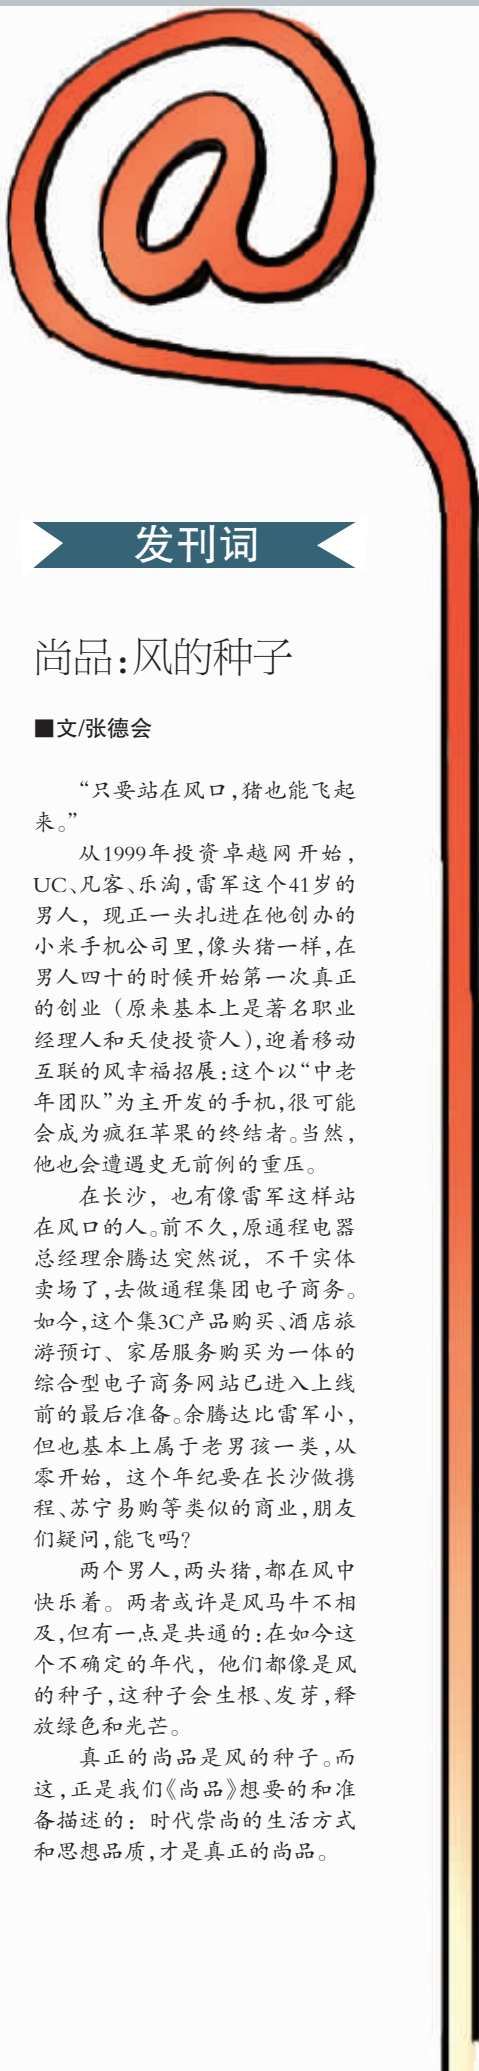 发刊词
尚品:风的种子
■文/张德会
“只要站在风口,猪也能飞起
来。”
从1999年投资卓越网开始,
UC、凡客、乐淘,雷军这个41岁的
男人，现正一头扎进在他创办的
小米手机公司里,像头猪一样,在
男人四十的时候开始第一次真正
的创业（原来基本上是著名职业
经理人和天使投资人),迎着移动
互联的风幸福招展:这个以“中老
年团队”为主开发的手机,很可能
会成为疯狂苹果的终结者。当然,
他也会遭遇史无前例的重压。
在长沙，也有像雷军这样站
在风口的人。前不久,原通程电器
总经理余腾达突然说，不干实体
卖场了,去做通程集团电子商务。
如今,这个集3C产品购买、酒店旅
游预订、家居服务购买为一体的
综合型电子商务网站已进入上线
前的最后准备。余腾达比雷军小,
但也基本上属于老男孩一类,从
零开始，这个年纪要在长沙做携
程、苏宁易购等类似的商业,朋友
们疑问,能飞吗?
两个男人,两头猪,都在风中
快乐着。两者或许是风马牛不相
及,但有一点是共通的:在如今这
个不确定的年代，他们都像是风
的种子,这种子会生根、发芽,释
放绿色和光芒。
真正的尚品是风的种子。而
这,正是我们《尚品》想要的和准
备描述的：时代崇尚的生活方式
和思想品质,才是真正的尚品。